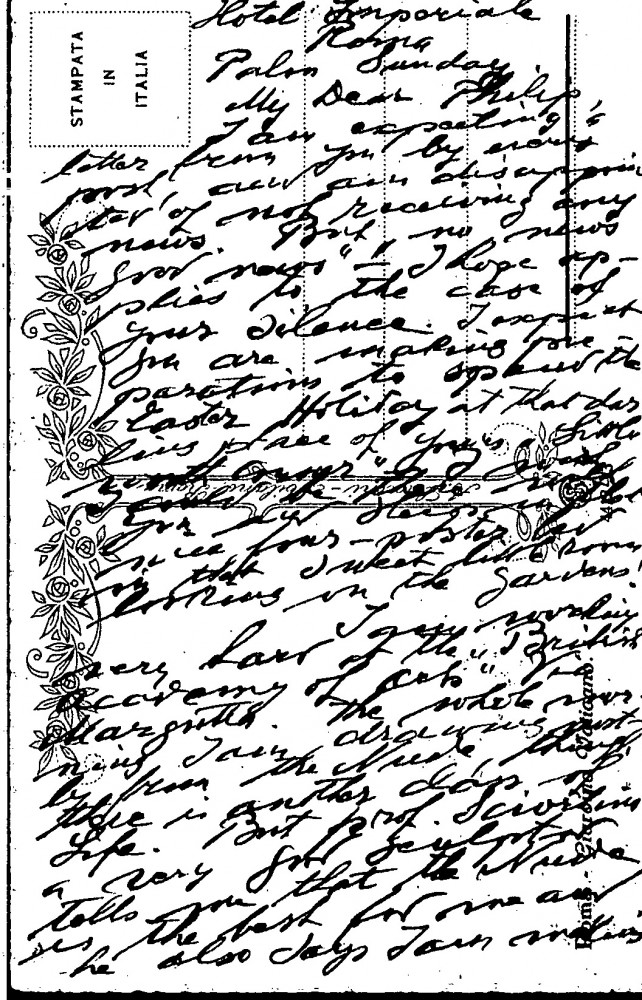 STAMPATA
IN
ITALIA
Hotel Imperiale
Roma
Palm Sunday
My Dear Philip,
I am expecting a
letter from you by every
post, and am disappoin
ted of not receiving any
news. But "no news
good news" – I hope ap-
plies to the case of
your silence. I expect
you are making pre-
parations to spend the
Easter Holiday at that dar
ling place of yours "Little
I could be there
you and sleep in
nice four-poster bed
in that sweet little room
looking on the gardens!
I am working
very hard at the "British
Academy of Arts" in
Margutta. The whole mor
ning I am drawing most
ly from the Nude, though
there is another class of
Life. But Prof. Sciortino
a very good sculptor
tells you that the Nude
is the best for me and
he also says I am making
Roma - Giardino Vaticano.